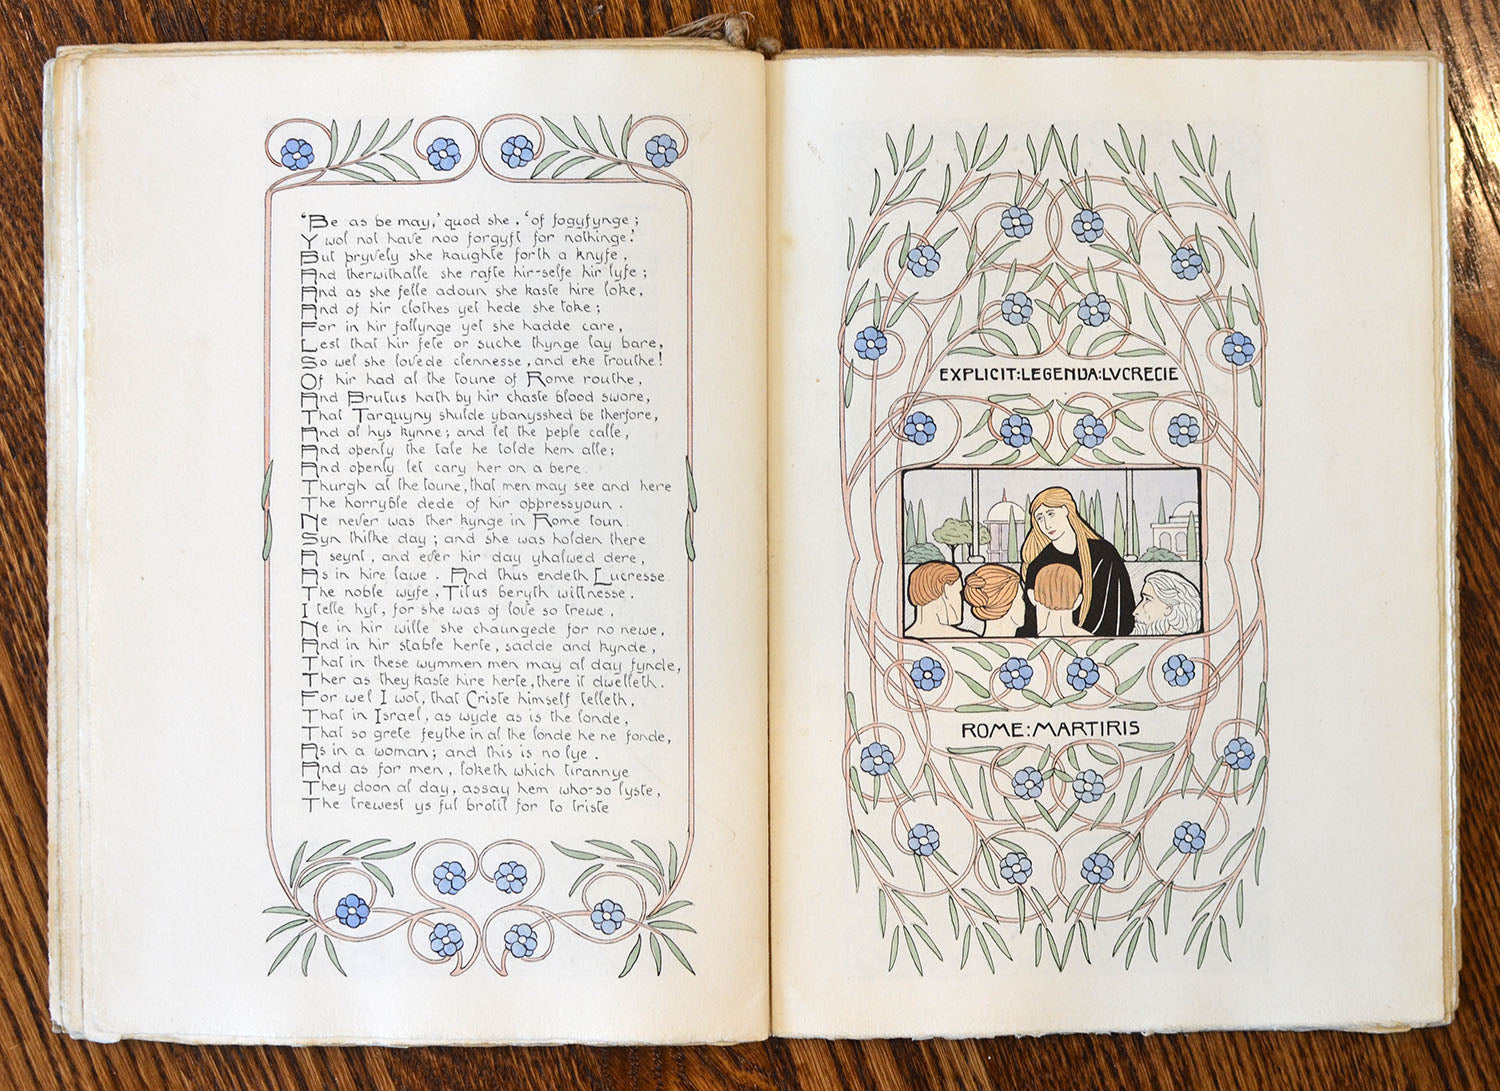 'Be as be may,' quod she, 'of fogyfynge;
Y wol not have noo forgyft for nothinge.'
But pryvely she kaughte forth a knyfe,
And therwithalle she rafte hir-selfe hir lyfe;
And as she felle adoun she kaste hire loke,
And of hir clothes yet hede she toke;
For in hir fallynge yet she hadde care,
Lest that hir fete or suche thynge lay bare,
So wel she lovede clennesse, and eke trouthe!
Of hir had al the toune of Rome routhe,
And Brutus hath by hir chaste blood swore,
That Tarquyny shulde ybanysshed be therfore,
And al hys kynne; and let the peple calle,
And openly the tale he tolde hem alle;
And openly let cary her on a bere.
Thurgh al the toune, that men may see and here
The horryble dede of hir oppressyoun.
Ne never was ther kynge in Rome toun.
Syn thilke day; and she was holden there
A seynt, and ever hir day yhalwed dere,
As in hire lawe. And thus endeth Lucresse
The noble wyfe, Titus beryth wittnesse.
I telle hyt, for she was of love so trewe,
Ne in hir wille she chaungede for no newe,
And in hir stable herte, sadde and kynde,
That in these wymmen men may al day fynde,
Ther as they kaste hire herte, there it dwelleth.
For wel I wot, that Criste himself telleth,
That in Israel, as wyde as is the londe,
That so grete feythe in al the londe he ne fonde,
As in a woman; and this is no lye.
And as for men, loketh which tirannye
They doon al day, assay hem who-so lyste,
The trewest ys ful brotil for to triste
EXPLICIT:LEGENDA:LVCRECIE
ROME:MARTIRIS